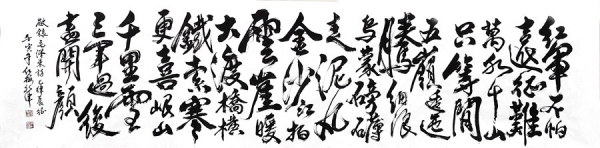 红军不怕
远征难
万水千山
只等闲
五岭逶迤
腾细浪
乌蒙磅礴
走泥丸
金沙江拍
云崖暖
大渡桥横
铁索寒
更喜岷山
千里雪
三军过后
尽开颜
敬录毛泽东诗七律长征